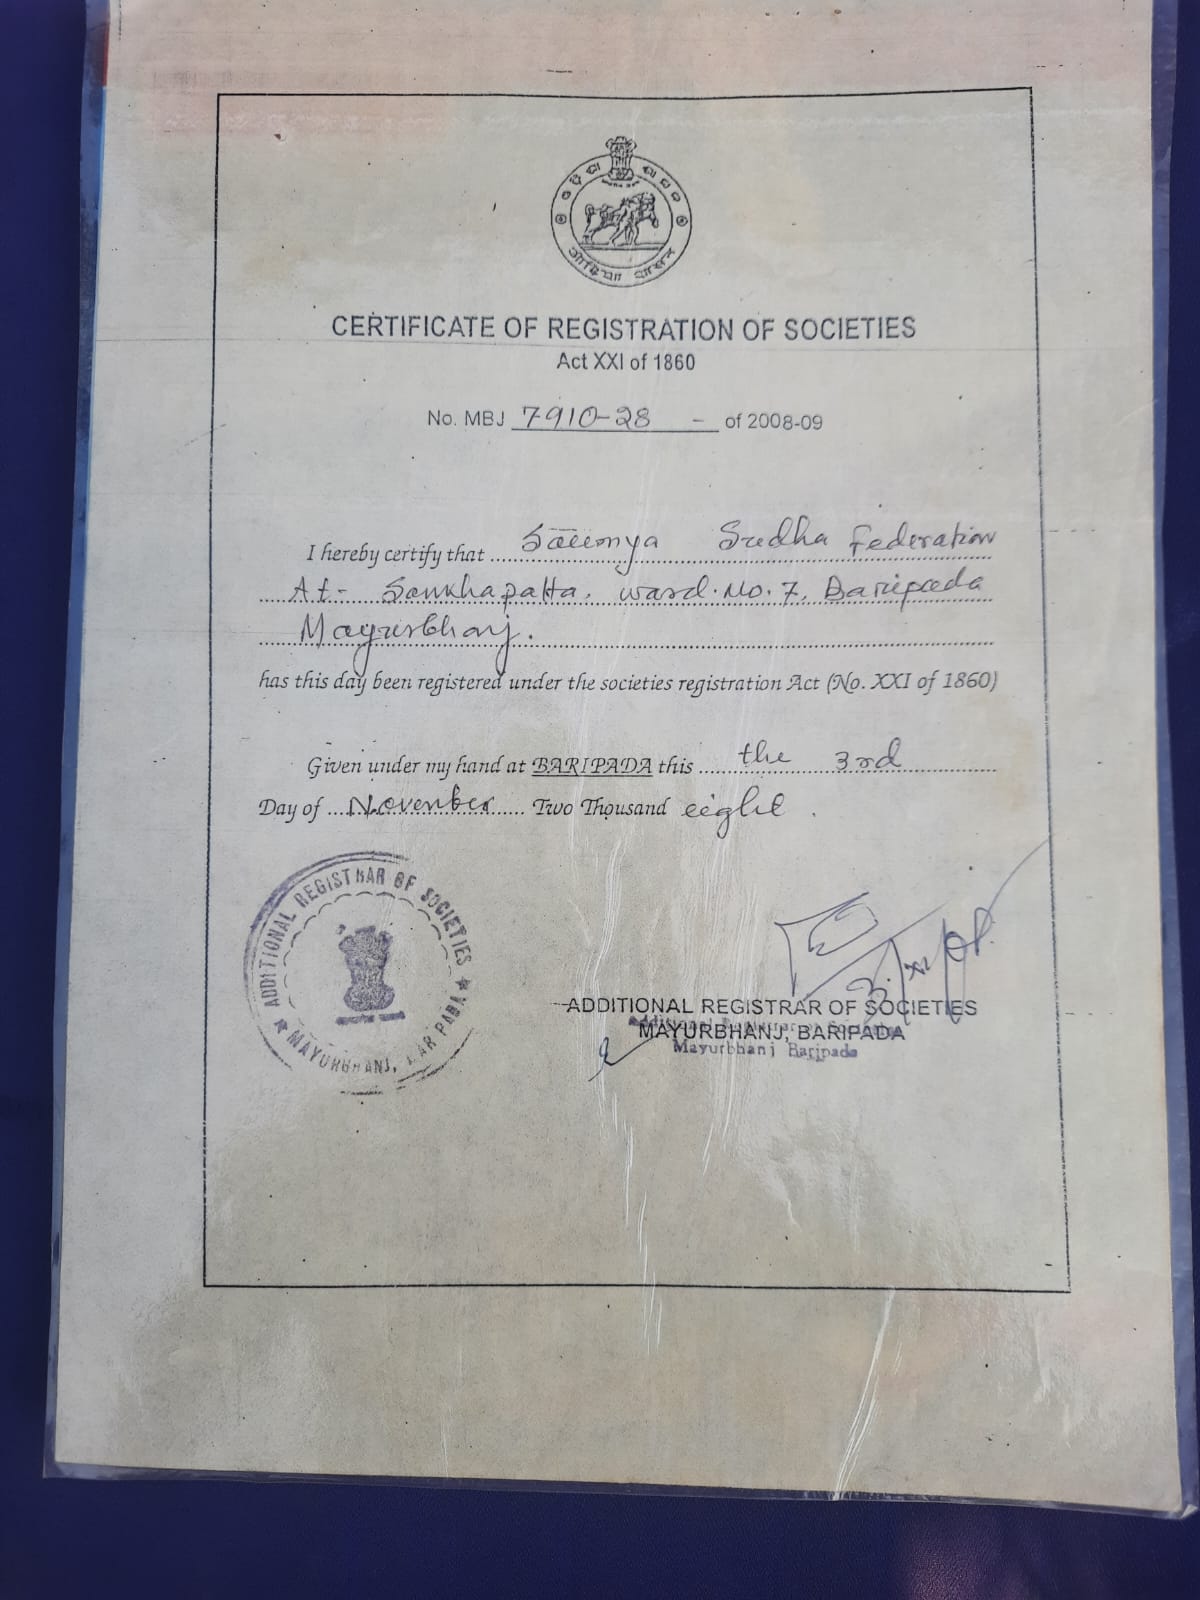 ଓଡ଼ିଶା ଶାସନ
ओड़िशा शासन
CERTIFICATE OF REGISTRATION OF SOCIETIES
Act XXI of 1860
No. MBJ 7910-28 - of 2008-09
I hereby certify that Soumya Sudha Federation
At- Sankhapatta, ward. No. 7, Baripada
Mayurbhanj.
has this day been registered under the societies registration Act (No. XXI of 1860)
Given under my hand at BARIPADA this the 3rd
Day of November Two Thousand eight.
ADDITIONAL REGISTRAR OF SOCIETIES
★ MAYURBHANJ, BARIPADA ★
ADDITIONAL REGISTRAR OF SOCIETIES
MAYURBHANJ, BARIPADA
Mayurbhanj Baripada